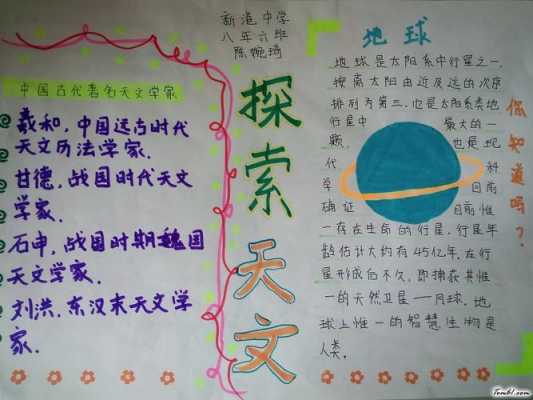 新港中学
八年六班
陈婉琦
中国古代著名天文学家
羲和,中国远古时代
天文历法学家.
甘德,战国时代天文
学家.
石申,战国时期魏国
天文学家.
刘洪,东汉末天文学
家.
探索天文
地球
地球是太阳系中行星之一,
按离太阳由近及远的次序
排列为第三,也是太阳系类地
行星中 最大的一
颗, 也是现
代 科
学 目前
确证 目前惟
一存在生命的行星,行星年
龄估计大约有45亿年.在行
星形成后不久,即捕获其惟
一的天然卫星——月球.地
球上惟一的智慧生物是
人类.
你知道吗?
Tom61.com